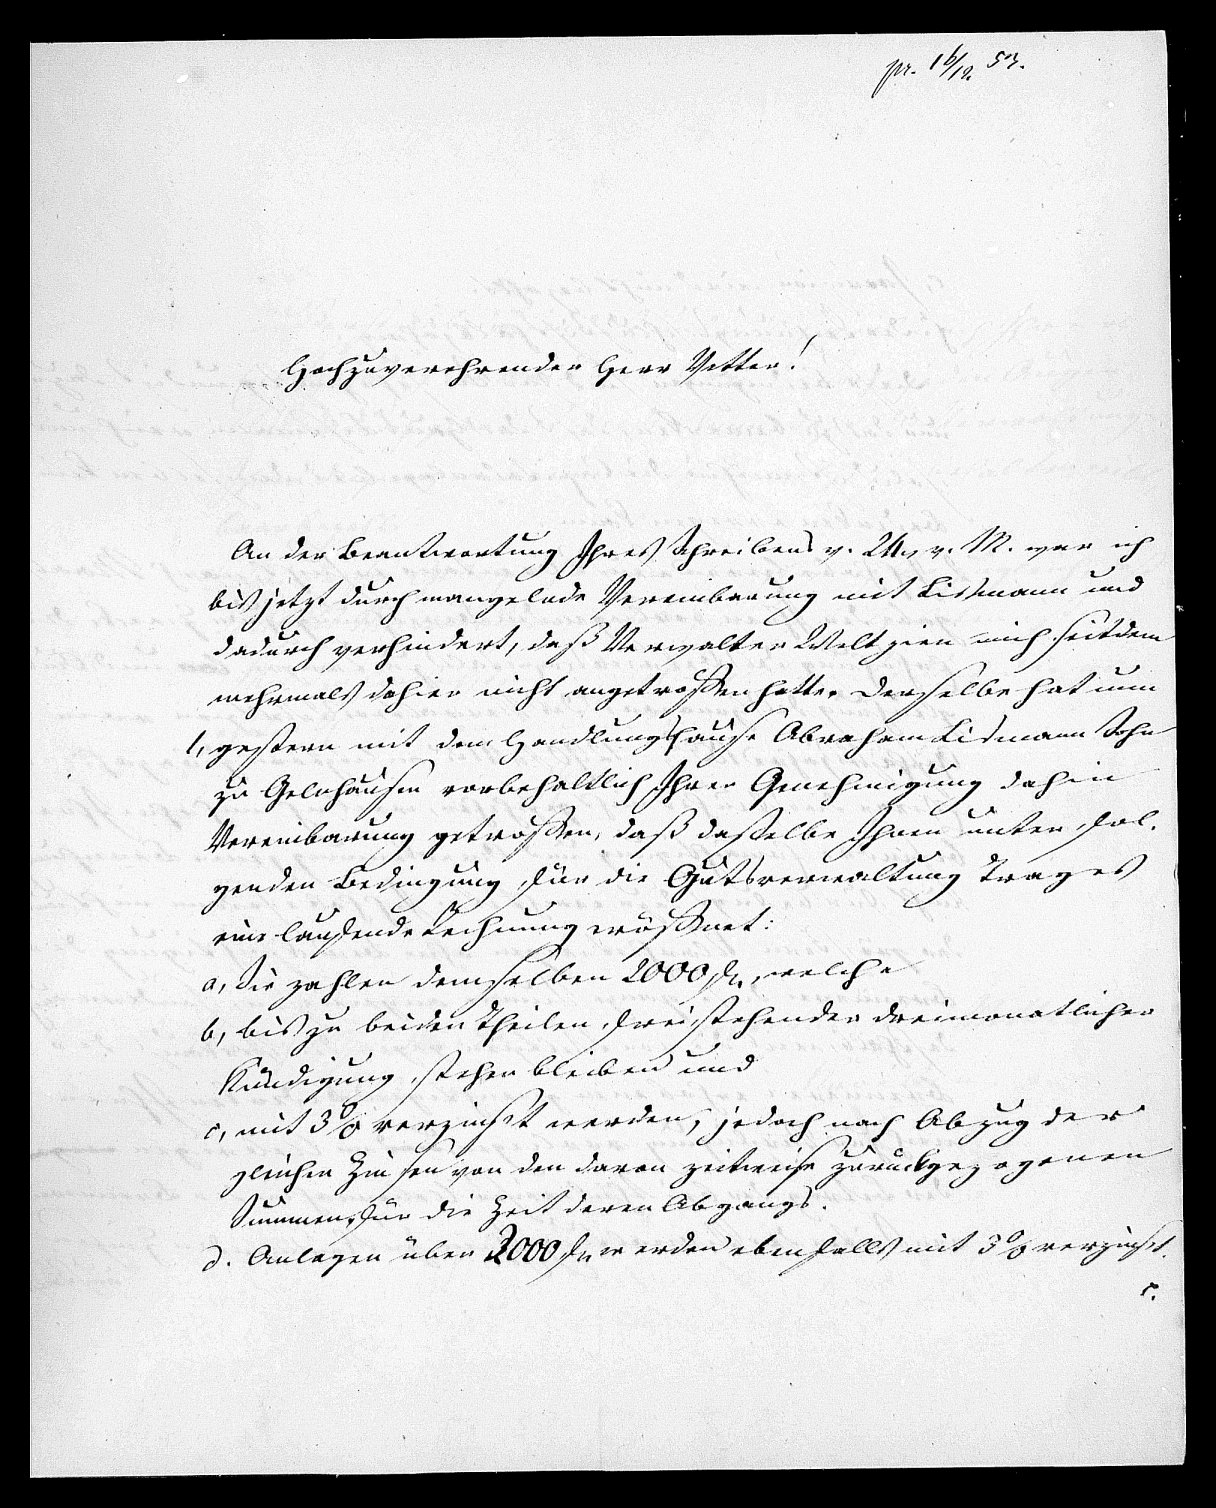 pr. 16/12. 57.
Hochzuverehrender Herr Vetter!
An der Beantwortung Ihres Schreibens v. 24. v. M. war ich
bis jetzt durch mangelnde Vereinbarung mit Lismann und
dadurch verhindert, daß Verwalter Weltzien mich seitdem
mehrmals dahier nicht angetroffen hatte. Derselbe hat nun
1, gestern mit dem Handlungshause Abraham Lismann Sohn
zu Gelnhausen vorbehaltlich Ihrer Genehmigung dahin
Vereinbarung getroffen, daß dasselbe Ihnen unter fol-
genden Bedingung für die Gutsverwaltung Trages
eine laufende Rechnung eröffnet:
a, Sie zahlen demselben 2000 fl., welche
b, bis zu beiden Theilen freistehender dreimonatlicher
Kündigung stehen bleiben und
c, mit 3% verzinst werden, jedoch nach Abzug der
gleichen Zinsen von den davon zeitweise zurückgezogenen
Summen, für die Zeit deren Abgangs.
d. Anlagen über 2000 fl. werden ebenfalls mit 3% verzinst.
e.